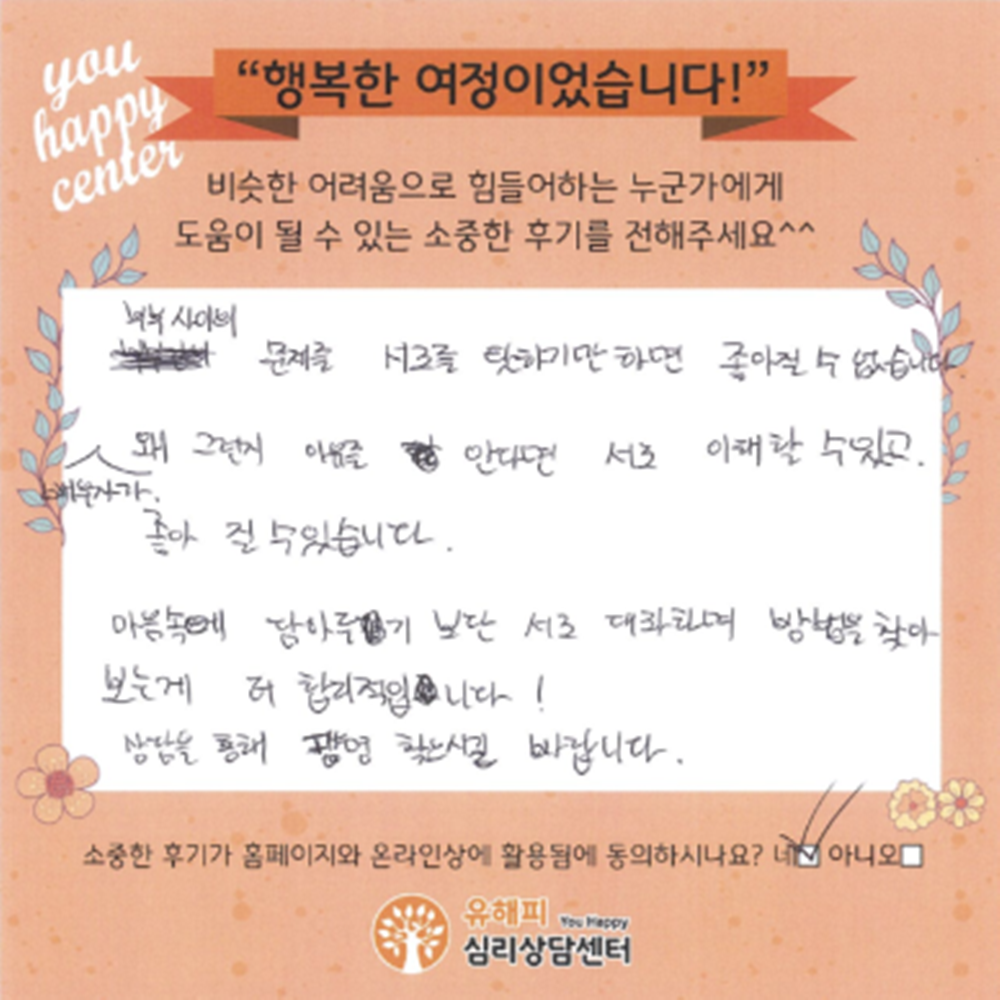 you
happy
center
“행복한 여정이었습니다!”
비슷한 어려움으로 힘들어하는 누군가에게
도움이 될 수 있는 소중한 후기를 전해주세요^^
부부 사이의
문제를 서로를 탓하기만 하면 좋아질 수 없습니다
왜 그런지 마음을 안다면 서로 이해할 수있고.
배우자가.
좋아 질 수있습니다.
마음속에 담아두기 보단 서로 대화하며 방법을 찾아
보는게 더 합리적입니다!
상담을 통해 찾으시길 바랍니다.
소중한 후기가 홈페이지와 온라인상에 활용됨에 동의하시나요? 네 아니오
유해피 You Happy
심리상담센터